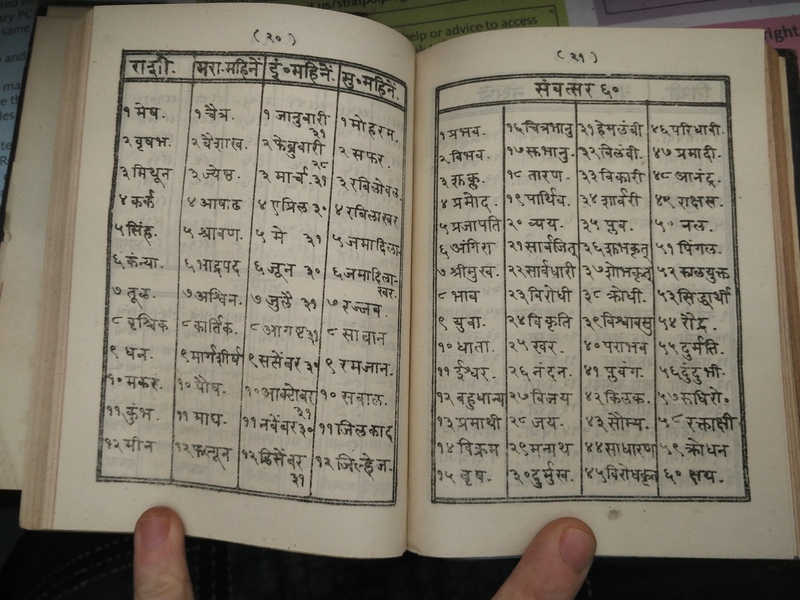 us/stratpol
lp or advice to access
right
(२०)
राशी. मरा-महिनें इं०महिनें. सु०महिनें.
१ मेष. १ चैत्र. १ जानुवारी ३१ १ मोहरम.
२ वृषभ. २ वैशाख. २ फेब्रुवारी २८ २ सफर.
३ मिथून ३ ज्येष्ठ. ३ मार्च. ३१ ३ रबिलोवल
४ कर्क ४ आषाढ ४ एप्रिल ३० ४ रबिलाखर
५ सिंह. ५ श्रावण. ५ मे ३१ ५ जमादिला
६ कंन्या. ६ भाद्रपद ६ जून ३० ६ जमादिला-खर.
७ तूळ. ७ अश्विन. ७ जुलै ३१ ७ रज्जब.
८ वृश्चिक ८ कार्तिक. ८ आगष्ट ३१ ८ साबान
९ धन. ९ मार्गशीर्ष ९ सप्तेंबर ३० ९ रमजान.
१० मकर. १० पौष. १० आक्टोबर ३१ १० सवाल.
११ कुंभ. ११ माघ. ११ नवेंबर ३० ११ जिलकाद
१२ मीन १२ फाल्गून १२ डिसेंबर ३१ १२ जिल्हेज.
(२१)
संवत्सर ६०
१ प्रभव. १६ चित्रभानु ३१ हेमलंबी ४६ परिधावी.
२ विभव. १७ सुभानु. ३२ विलंबी. ४७ प्रमादी.
३ शुक्ल. १८ तारण. ३३ विकारी ४८ आनंद.
४ प्रमोद. १९ पार्थिव. ३४ शार्वरी ४९ राक्षस.
५ प्रजापति २० व्यय. ३५ प्लव. ५० नल.
६ अंगिरा २१ सार्वजित् ३६ शुभकृत् ५१ पिंगल.
७ श्रीमुख. २२ सार्वधारी ३७ शोभकृत् ५२ काळयुक्त
८ भाव २३ विरोधी ३८ क्रोधी. ५३ सिद्धार्थी
९ युवा. २४ विकृति ३९ विश्वावसु ५४ रौद्र.
१० धाता. २५ खर. ४० पराभव ५५ दुर्मति.
११ ईश्वर. २६ नंदन. ४१ प्लवंग. ५६ दुंदुभी.
१२ बहुधान्य २७ विजय ४२ किलक. ५७ रुधिरो.
१३ प्रमाथी २८ जय. ४३ सौम्य. ५८ रक्ताक्षी
१४ विक्रम २९ मन्मथ ४४ साधारण ५९ क्रोधन
१५ वृष. ३० दुर्मुख. ४५ विरोधकृत् ६० क्षय.